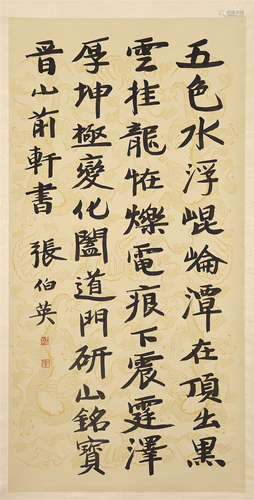 五色水浮崐崘潭在頂出黒
雲挂龍怪爍電痕下震霆澤
厚坤極變化闔道門研山銘寳
晋山前軒書
張伯英